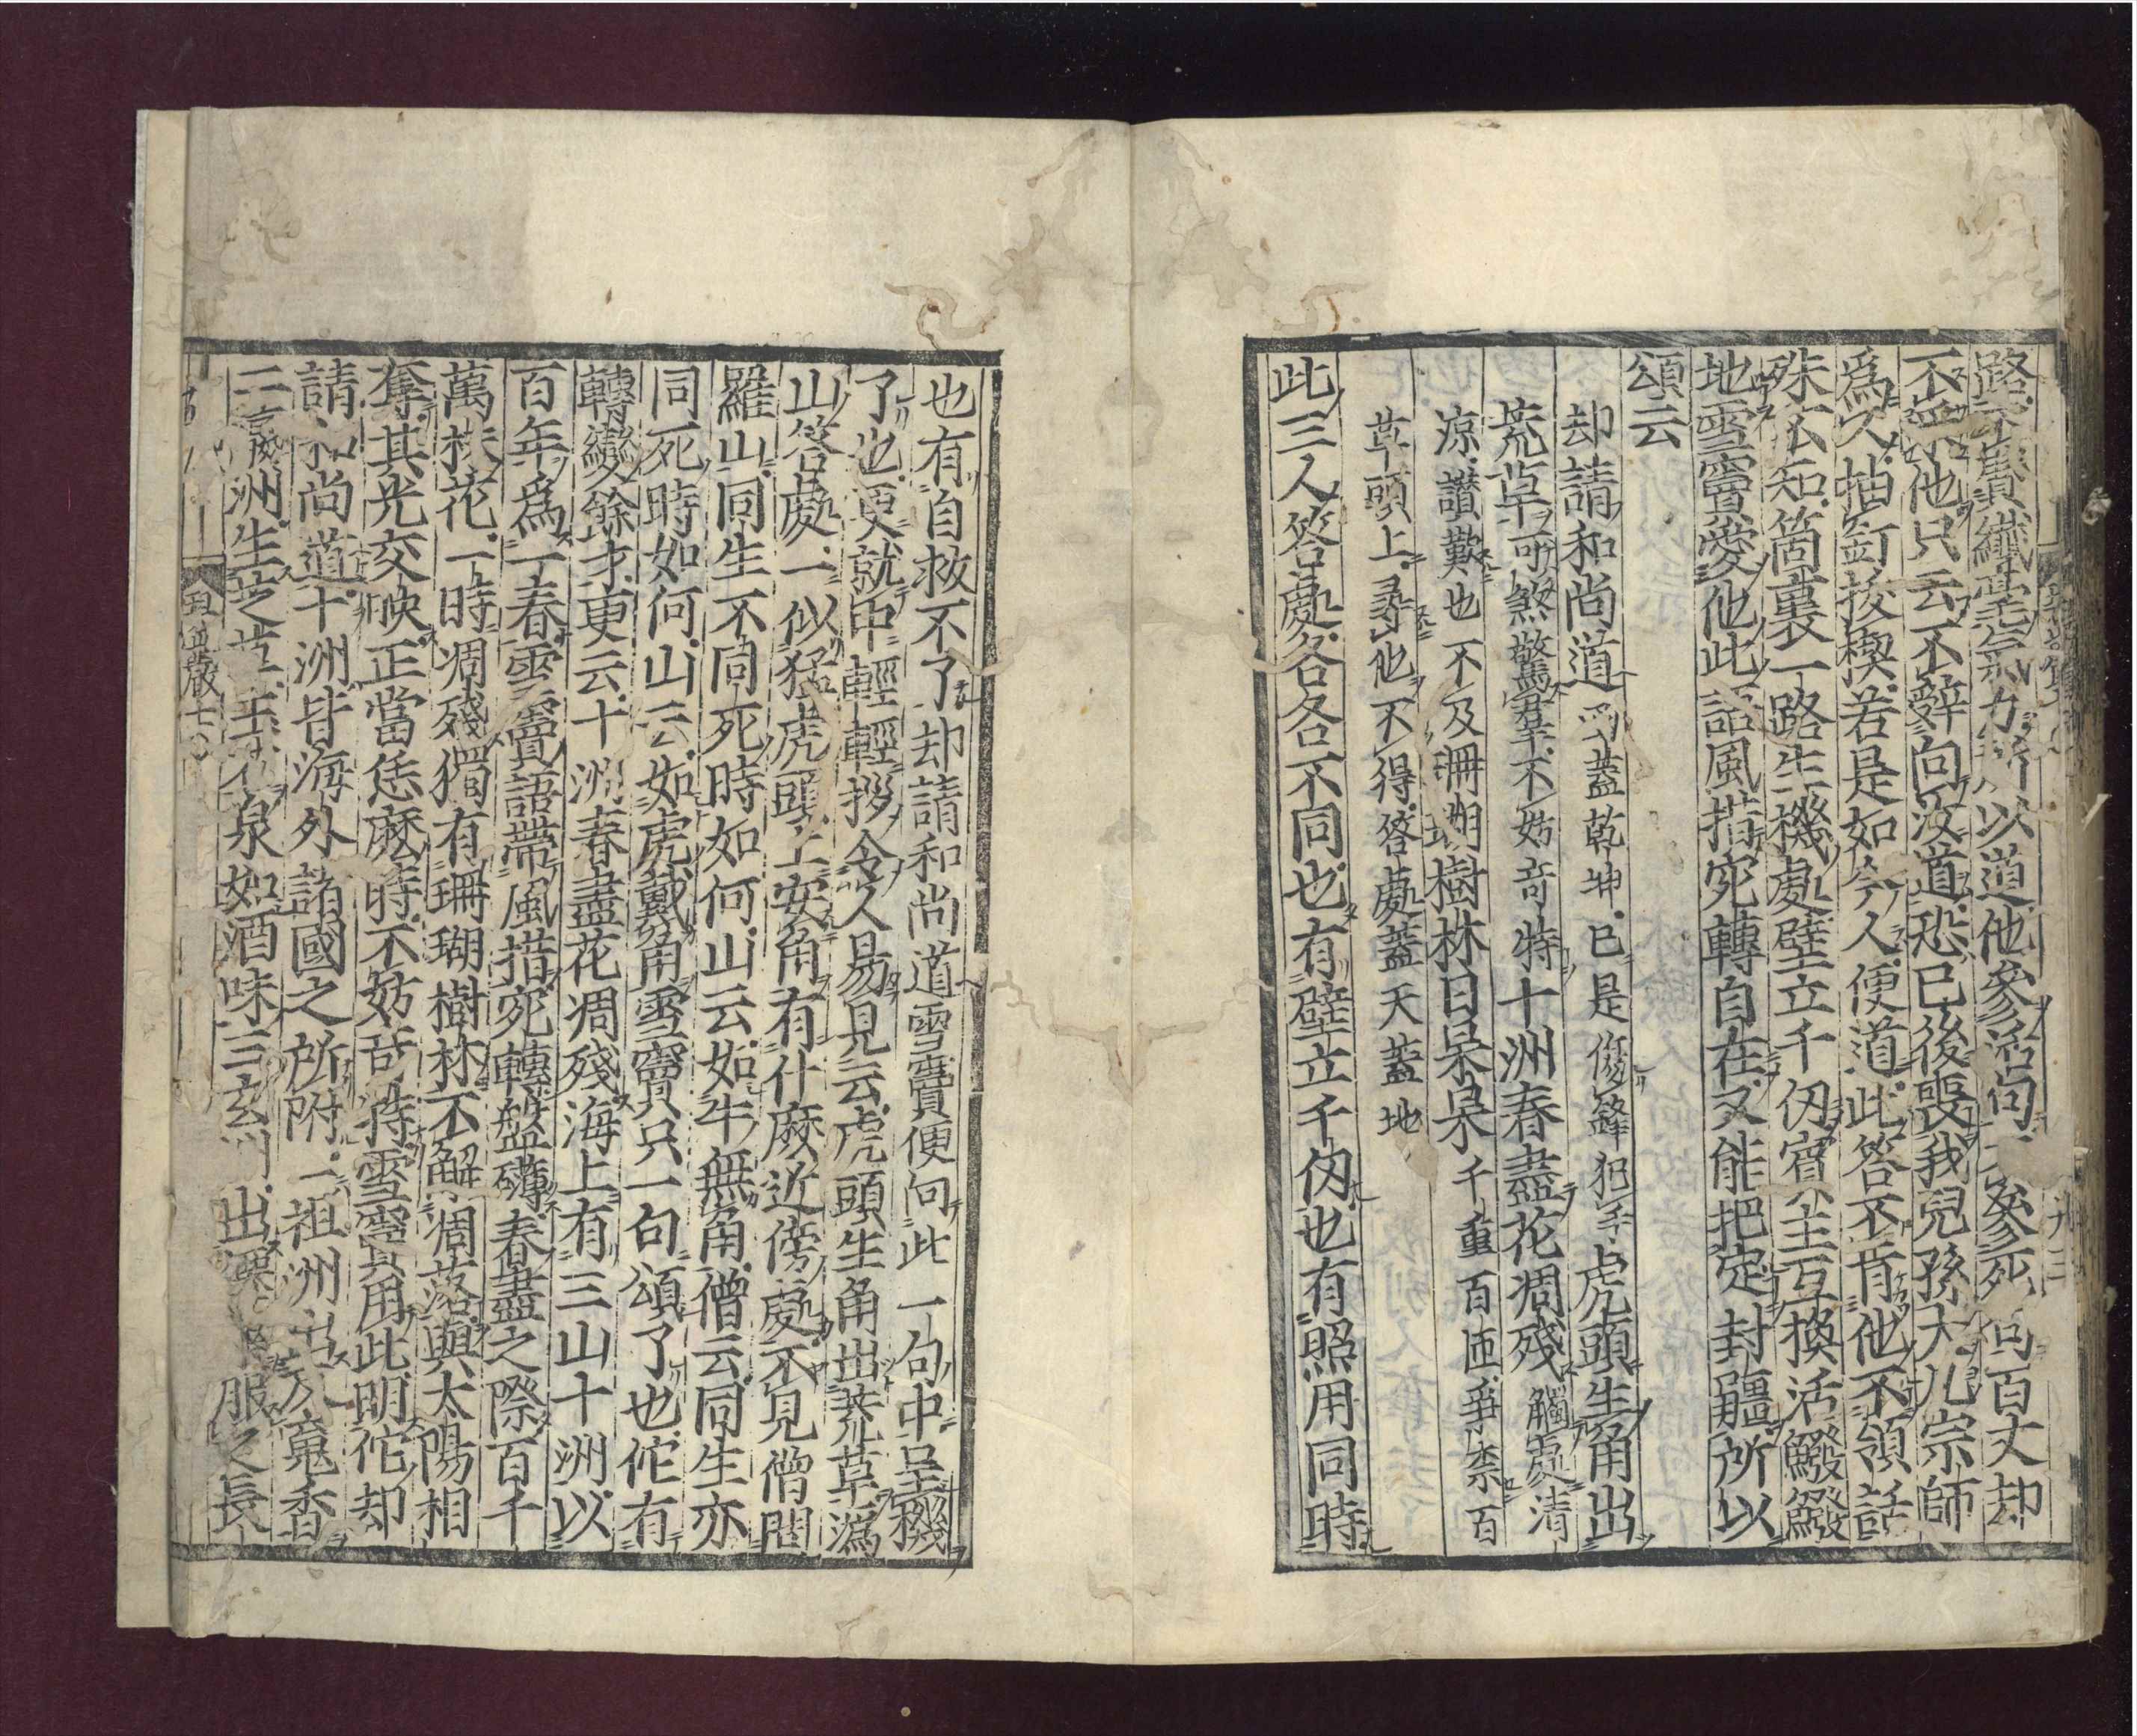 路不費纖毫氣力所以道他參活句不參死句百丈却
不采他只云不辭向汝道恐已後喪我兒孫大凡宗師
爲人抽釘拔楔若是如今人便道此答不肯他不領話
殊不知箇裏一路生機處壁立千仞賓主互換活鱍鱍
地雪竇愛他此語風措宛轉自在又能把定封疆所以
頌云
却請和尚道凾蓋乾坤已是傷鋒犯手虎頭生角出
荒草可煞驚羣不妨奇特十洲春盡花凋殘觸處清
凉讃歎也不及珊瑚樹林日杲杲千重百匝爭柰百
草頭上尋他不得答處蓋天蓋地
此三人答處各各不同也有壁立千仞也有照用同時
也有自救不了却請和尚道雪竇便向此一句中呈機
了也更就中輕輕拶令人易見云虎頭生角出荒草潙
山答處一似猛虎頭上安角有什麽近傍處不見僧問
羅山同生不同死時如何山云如牛無角僧云同生亦
同死時如何山云如虎戴角雪竇只一句頌了也佗有
轉變餘才更云十洲春盡花凋殘海上有三山十洲以
百年爲一春雪竇語帶風措宛轉盤礴春盡之際百千
萬株花一時凋殘獨有珊瑚樹林不解凋落與太陽相
奪其光交映正當恁麽時不妨奇特雪竇用此明佗却
請和尚道十洲皆海外諸國之所附一祖洲出反魂香
二瀛洲生芝草玉石泉如酒味三玄洲出仙藥服之長